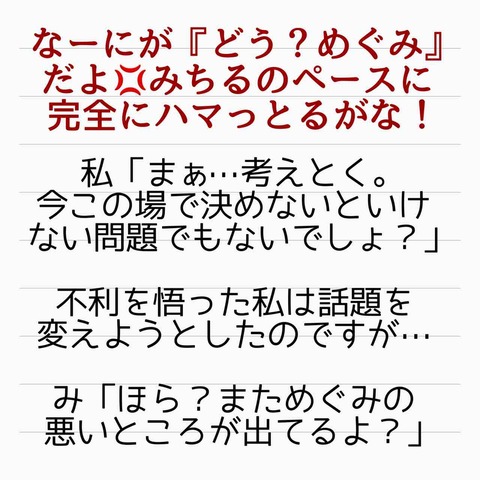 なーにが『どう？めぐみ』
だよ💢みちるのペースに
完全にハマっとるがな！
私「まぁ…考えとく。
今この場で決めないといけ
ない問題でもないでしょ？」
不利を悟った私は話題を
変えようとしたのですが…
み「ほら？まためぐみの
悪いところが出てるよ？」